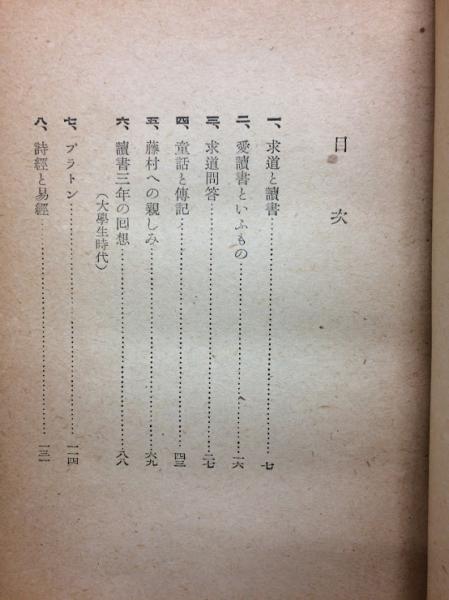 目次
一、求道と讀書……七
二、愛讀書といふもの……一六
三、求道問答……二七
四、童話と傳記……四三
五、藤村への親しみ……六九
六、讀書三年の回想……八八
(大學生時代)
七、プラトン……一一四
八、詩經と易經……一三一